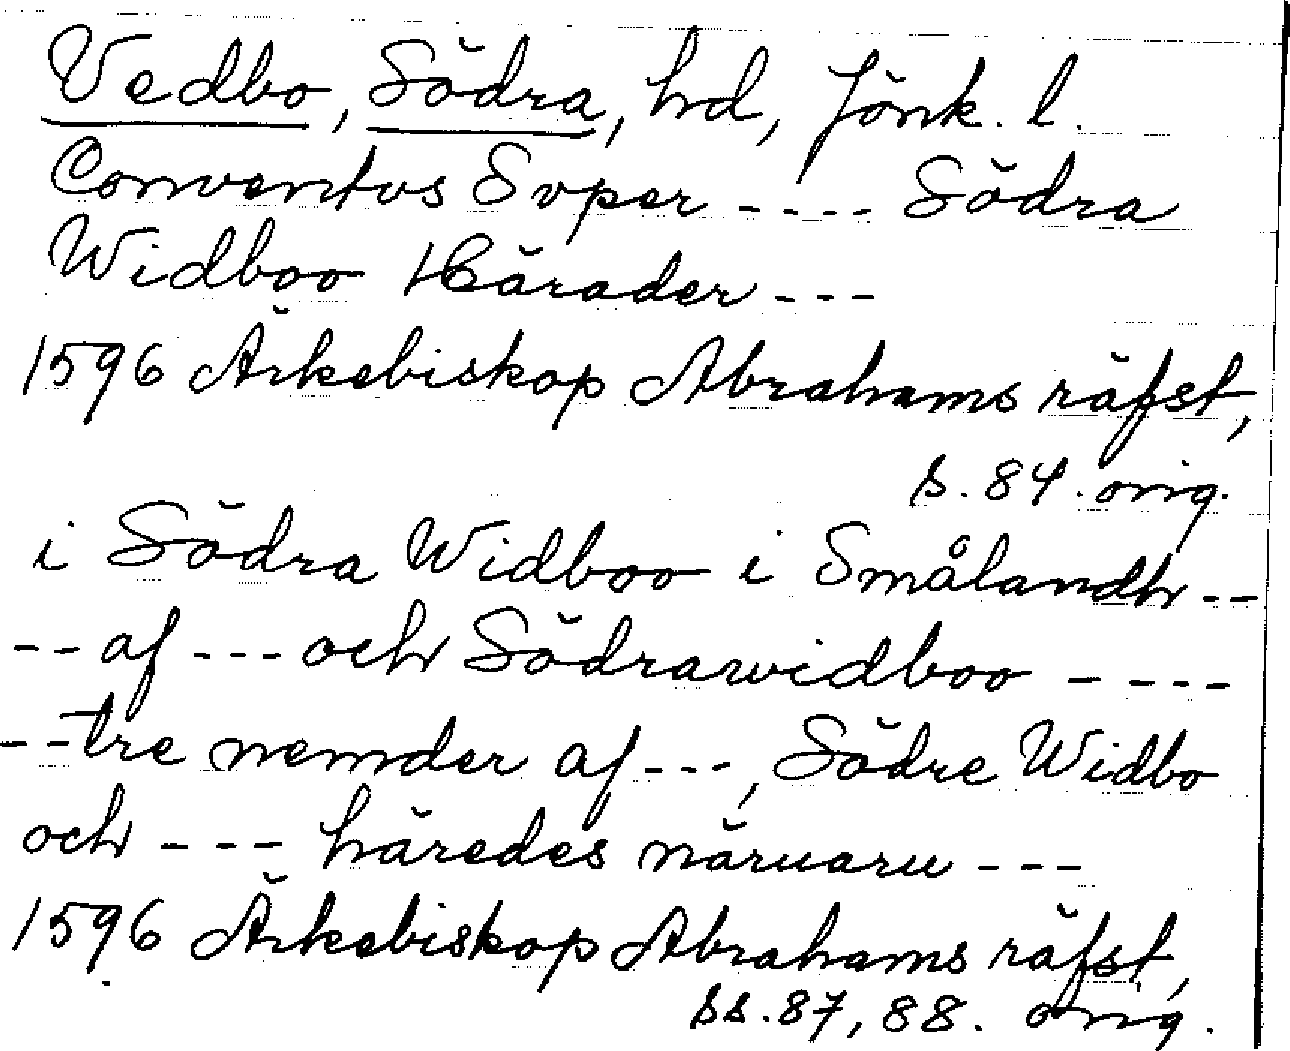 Vedbo, Södra, hd, Jönk. l.
Conventus Super ---- Södra
Widboo Härader ---
1596 Ärkebiskop Abrahams räfst,
s. 84. orig.
i Södra Widboo i Smålandh --
-- af --- och Södrawidboo ----
-- tre nemder af ---, Södre Widbo
och --- häredes näruaru ---
1596 Ärkebiskop Abrahams räfst,
ss. 87, 88. orig.